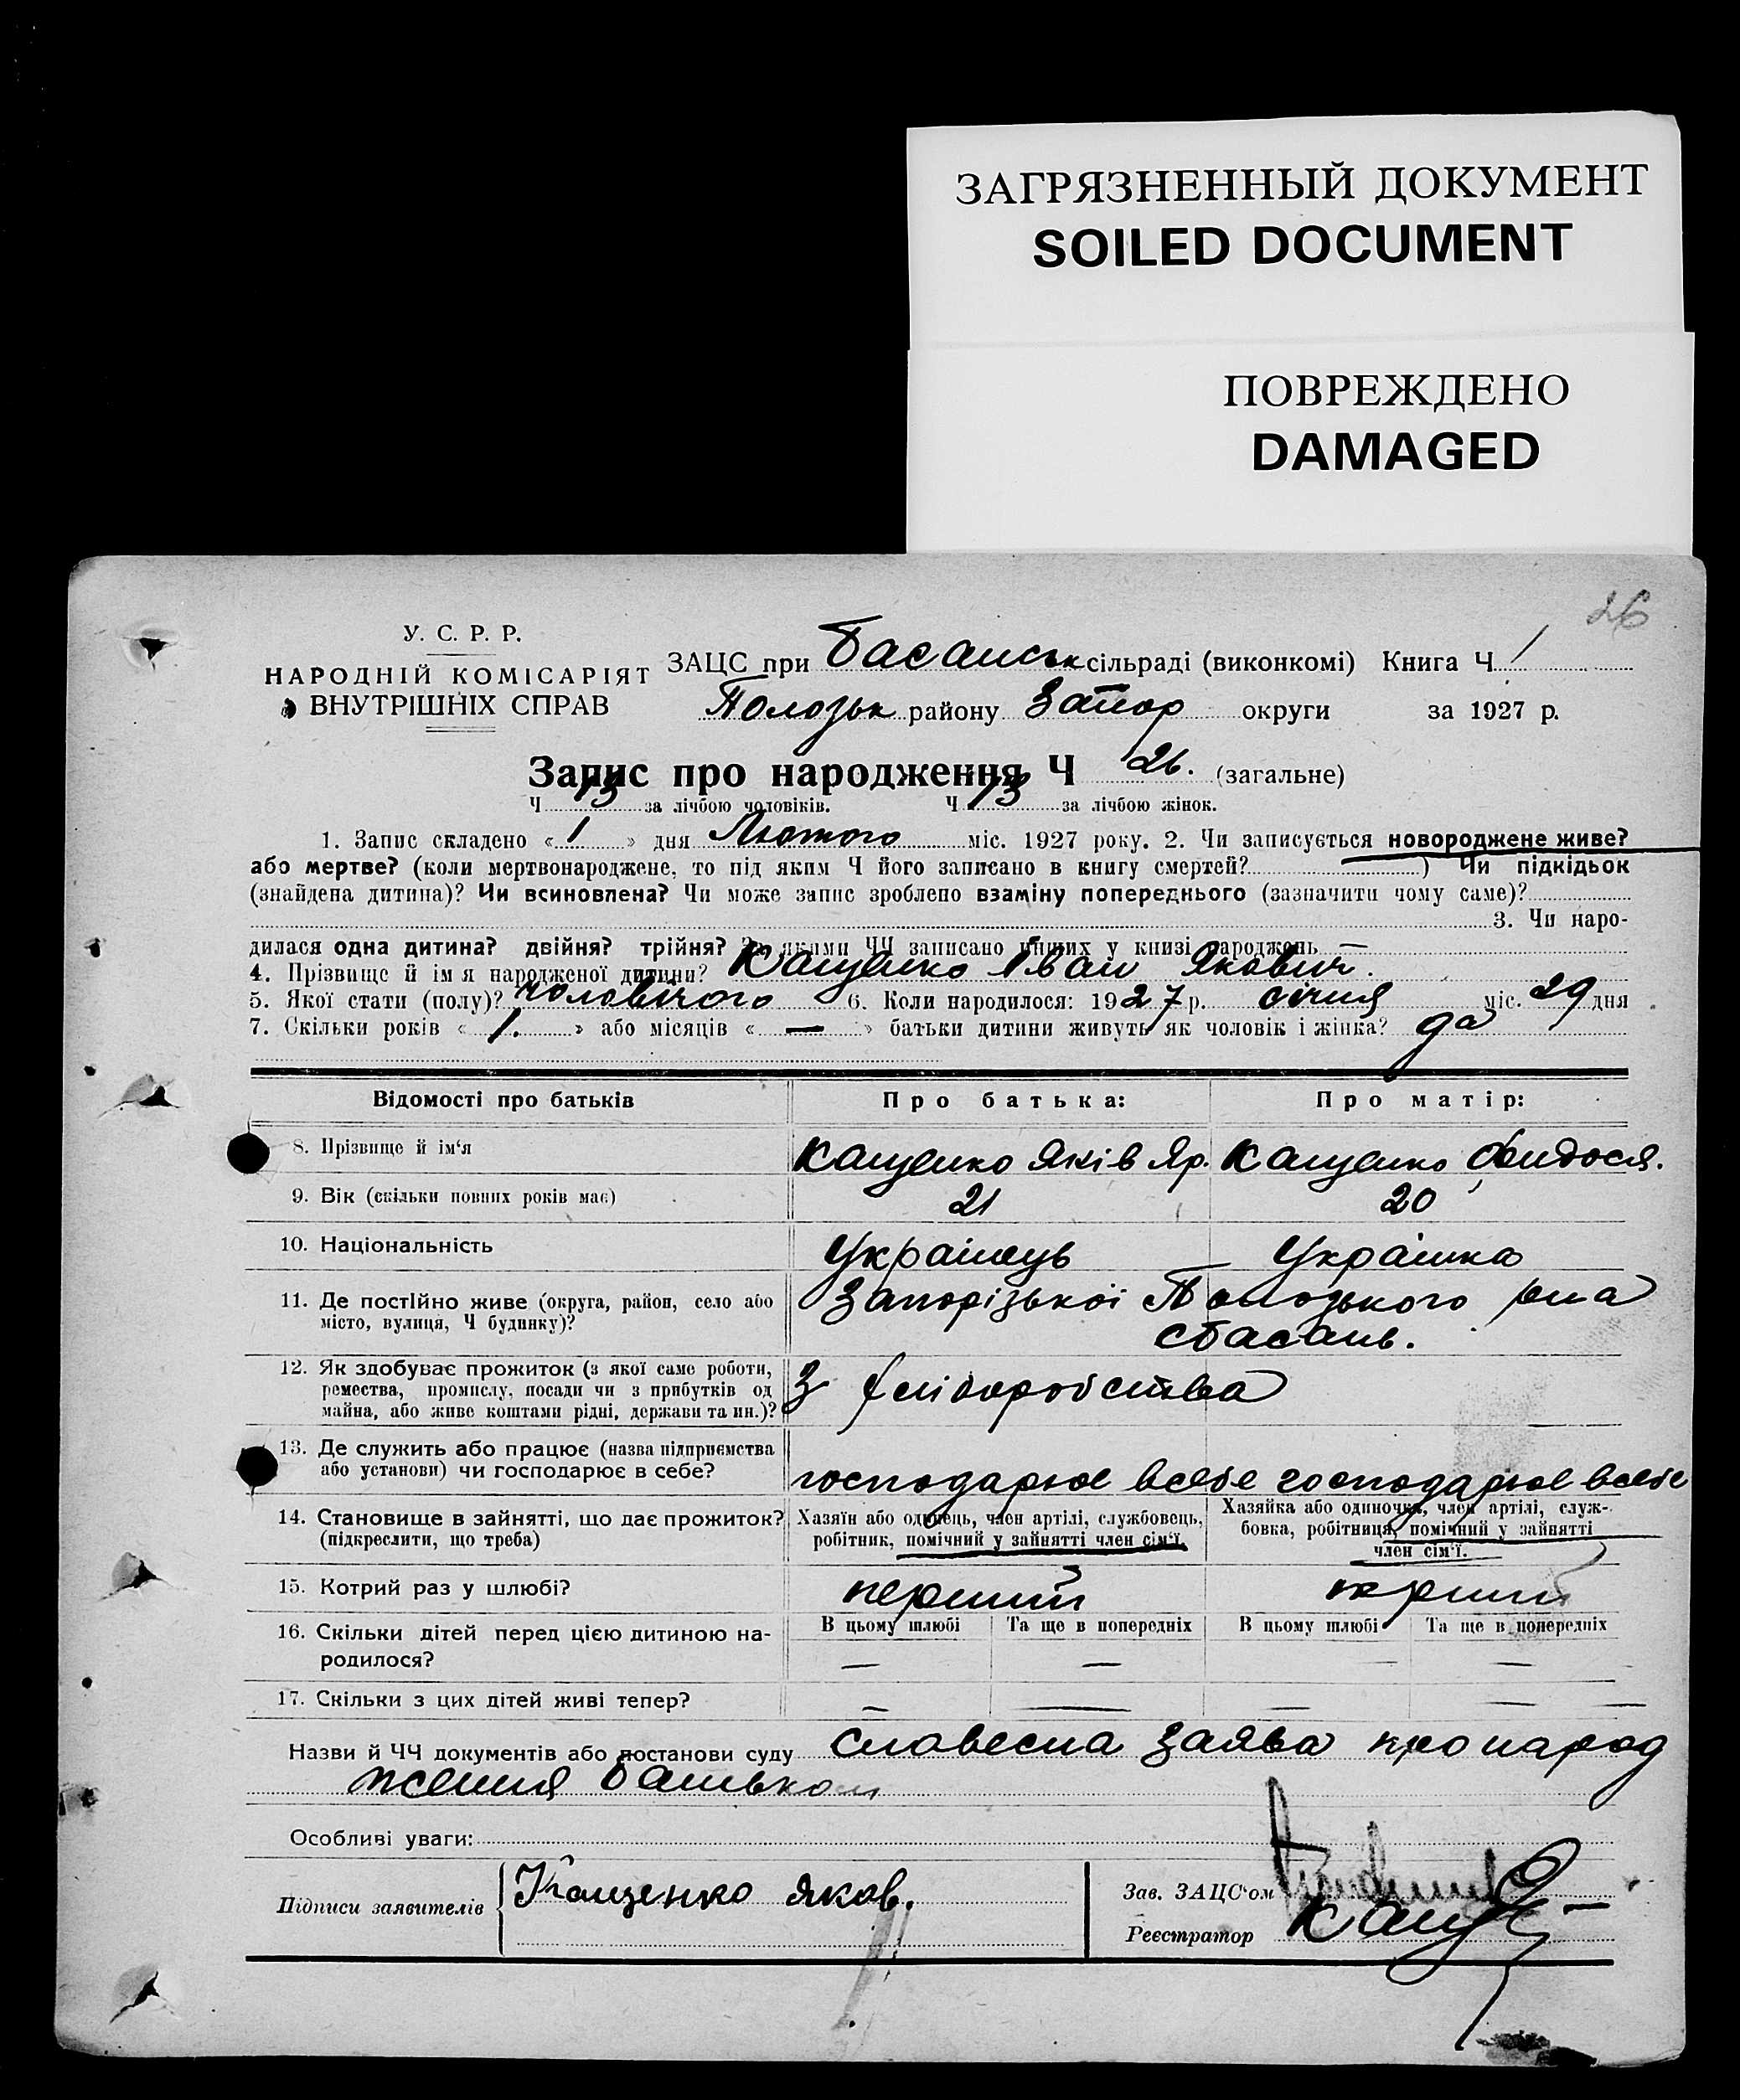 ЗАГРЯЗНЕННЫЙ ДОКУМЕНТ
SOILED DOCUMENT
ПОВРЕЖДЕНО
DAMAGED
26
У. С. Р. Р.
НАРОДНІЙ КОМІСАРІЯТ
ВНУТРІШНІХ СПРАВ
ЗАЦС при Басанськ сільраді (виконкомі) Книга Ч. 1
Пологзьк району Запор округи за 1927 р.
Запис про народження Ч 26. (загальне)
Ч 13 за лічбою чоловіків. Ч 13 за лічбою жінок.
1. Запис складено « 1 » дня Лютого міс. 1927 року. 2. Чи записується новороджене живе?
або мертве? (коли мертвонароджене, то під яким Ч його записано в книгу смертей? ) Чи підкідьок
(знайдена дитина)? Чи всиновлена? Чи може запис зроблено взаміну попереднього (зазначити чому саме)?
3. Чи наро-
дилася одна дитина? двійня? трійня? За якими ЧЧ записано інших у книзі народжень —
4. Прізвище й ім я народженої дитини? Кащенко Іван Якович.
5. Якої стати (полу)? чоловічого 6. Коли народилося: 1927 р. січня міс. 29 дня
7. Скільки років « 1. » або місяців « — » батьки дитини живуть як чоловік і жінка? да
Відомості про батьків Про батька: Про матір:
8. Прізвище й ім'я Кащенко Яків Яр. Кащенко Фидося.
9. Вік (скільки повних років має) 21 20
10. Національність Українець Українка
11. Де постійно живе (округа, район, село або
місто, вулиця, Ч будинку)?
Запорізької Пологзького рна
с басань.
12. Як здобуває прожиток (з якої саме роботи,
ремества, промислу, посади чи з прибутків од
майна, або живе коштами рідні, держави та ин.)?
З хліборобства
13. Де служить або працює (назва підприємства
або установи) чи господарює в себе?
господарює всебе господарює всебе
14. Становище в зайнятті, що дає прожиток?
(підкреслити, що треба)
Хазяїн або одинець, член артілі, службовець,
робітник, помічний у зайнятті член сім'ї.
Хазяйка або одиночка, член артілі, служ-
бовка, робітниця, помічний у зайнятті
член сім'ї.
15. Котрий раз у шлюбі? перший перший
16. Скільки дітей перед цією дитиною на-
родилося?
В цьому шлюбі Та ще в попередніх В цьому шлюбі Та ще в попередніх
— — — —
17. Скільки з цих дітей живі тепер? — — — —
Назви й ЧЧ документів або постанови суду Словесна заява про народ
ження батьком
Особливі уваги:
Підписи заявителів Кащенко Яков.
Зав. ЗАЦС'ом
Реєстратор Кащ